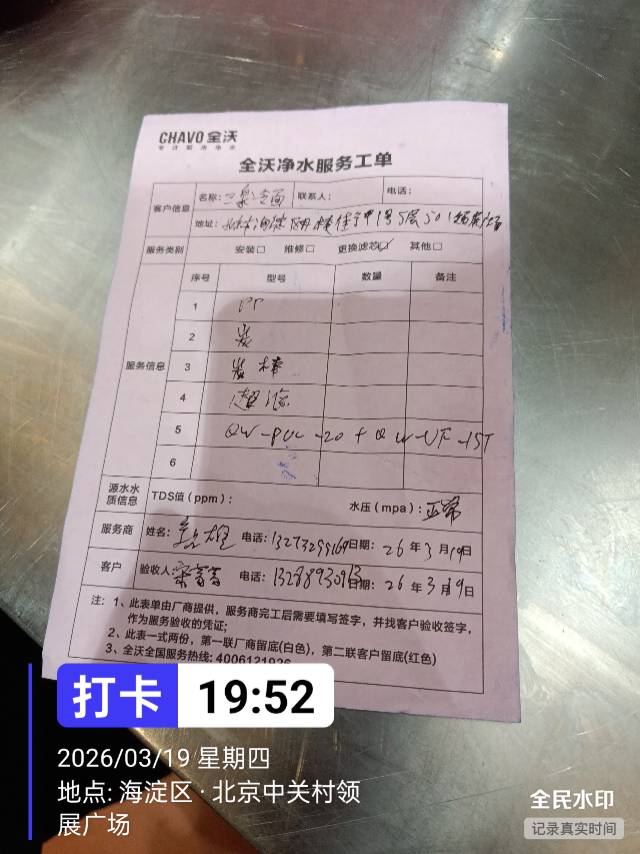 CHAVO 全沃
全沃净水服务工单
客户信息
名称: 联系人: 电话:
地址: 北京市海淀区
服务类别 安装□ 维修□ 更换滤芯☑ 其他□
服务信息
序号 型号 数量 备注
1 PP
2 炭
3 炭棒
4 超滤
5 QW-PUC-20+QW-UF-15T
6
源水水质信息 TDS值（ppm）: 水压（mpa）: 正常
服务商 姓名: 电话: 日期: 26年3月19日
客户 验收人: 电话: 日期: 26年3月19日
注: 1、此表单由厂商提供，服务商完工后需要填写签字，并找客户验收签字，
作为服务验收的凭证;
2、此表一式两份，第一联厂商留底(白色)，第二联客户留底(红色)
3、全沃全国服务热线: 4006121926
打卡 19:52
2026/03/19 星期四
地点: 海淀区·北京中关村领
展广场
全民水印
记录真实时间